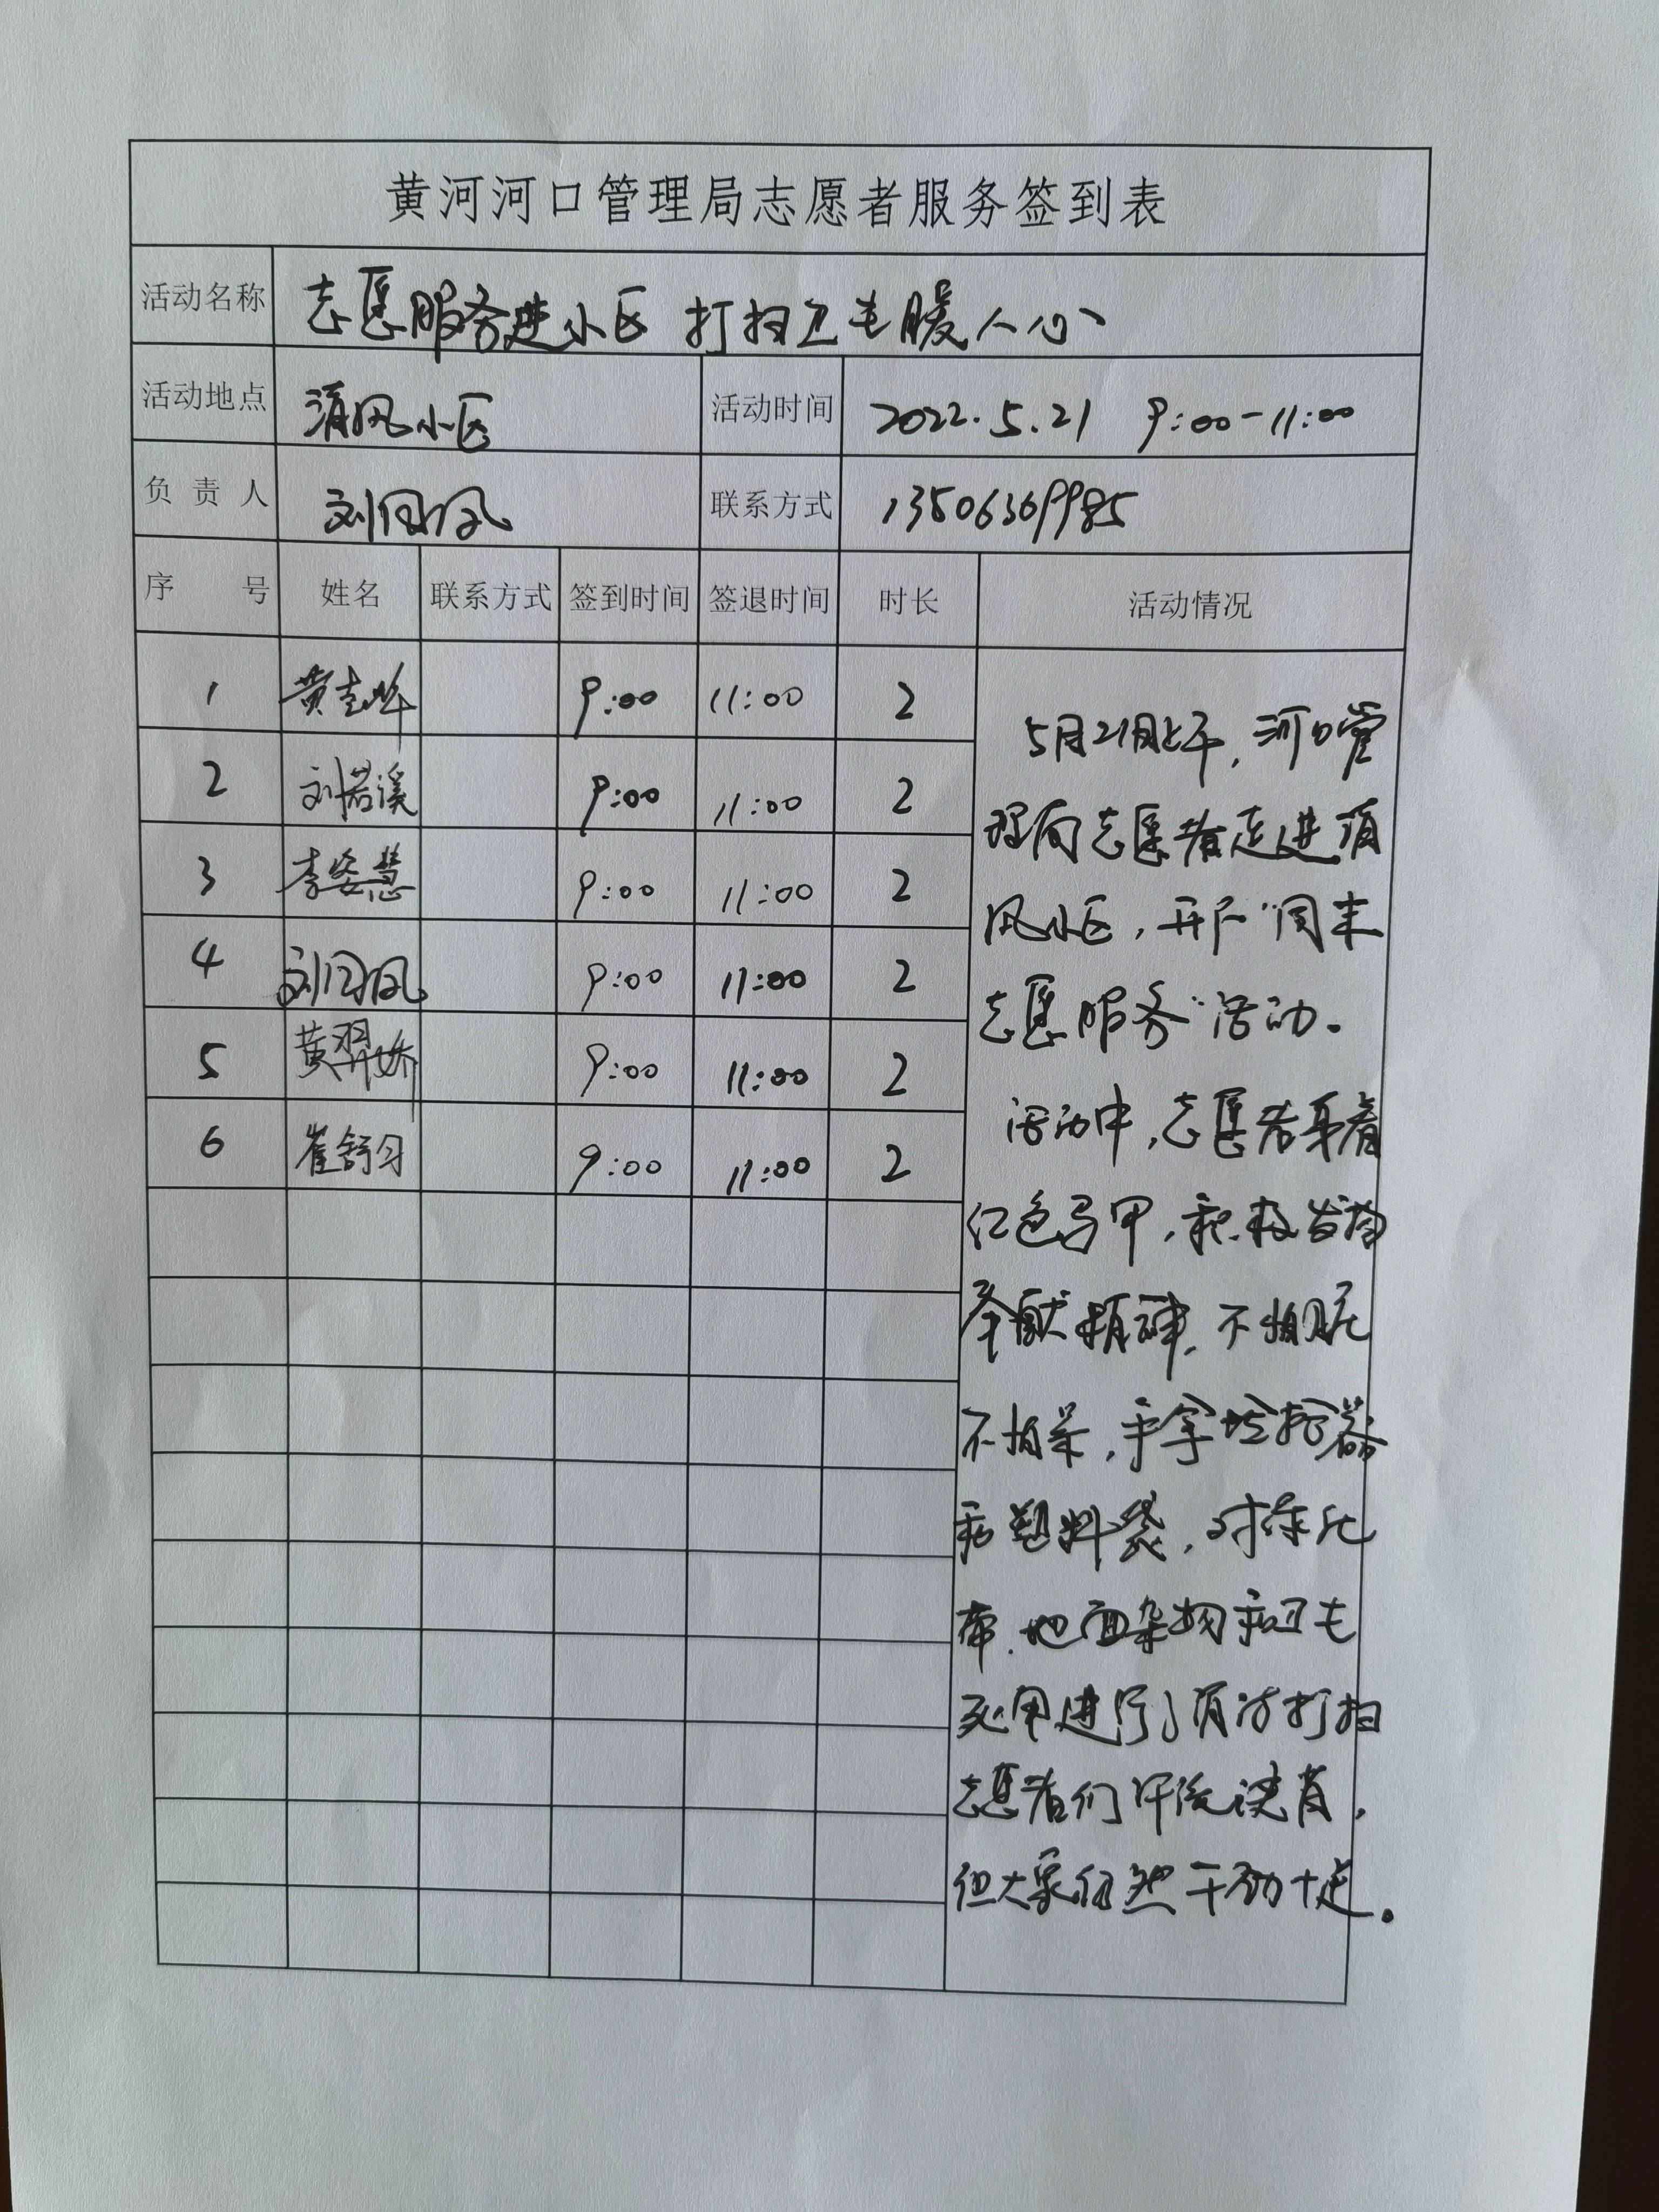 黄河河口管理局志愿者服务签到表
活动名称 志愿服务进小区 打扫卫生暖人心
活动地点 清风小区 活动时间 2022.5.21 9:00-11:00
负责人 刘风 联系方式 13506369985
序号 姓名 联系方式 签到时间 签退时间 时长 活动情况
1 黄 9:00 11:00 2
2 刘若溪 9:00 11:00 2
3 李姿慧 9:00 11:00 2
4 刘风 9:00 11:00 2
5 黄羿娇 9:00 11:00 2
6 崔舒 9:00 11:00 2
5月21日上午,河口管
理局志愿者走进清
风小区,开展"周末
志愿服务"活动.
活动中,志愿者身着
红色马甲,积极发扬
奉献精神,不怕脏
不怕累,手拿垃圾器
和塑料袋,对绿化
带、地面杂物和卫生
死角进行了清洁打扫
志愿者们汗流浃背,
但大家仍然干劲十足。